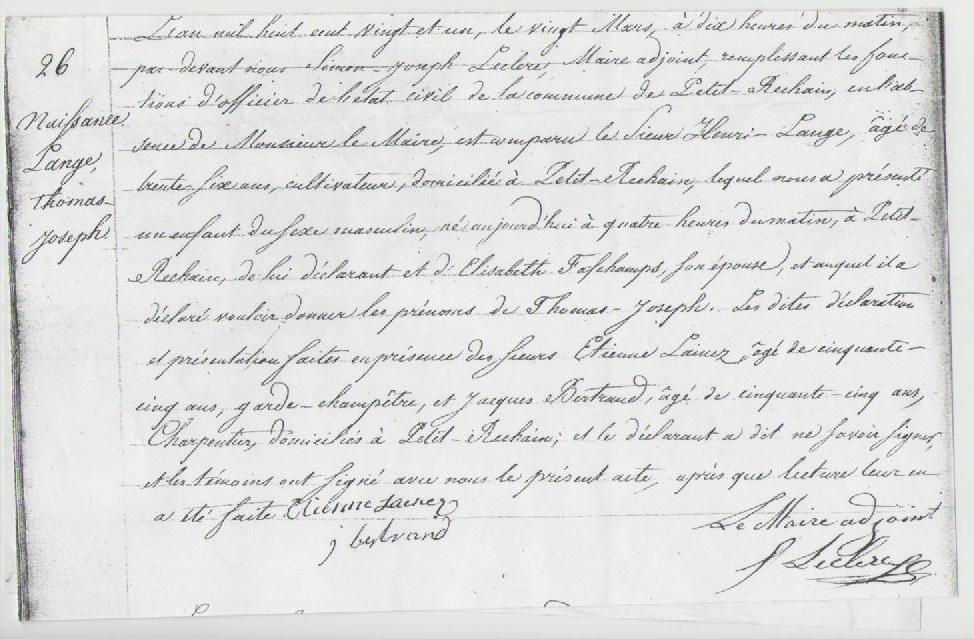 26
Naissance.
Lange,
thomas-
Joseph.
L'an mil huit cent vingt et un, le vingt Mars, à dix heures du matin,
par-devant nous Simon-Joseph-Leclerc, Maire adjoint, remplessant les fonc-
tions d'officier de l'état civil de la commune de Petit-Rechain, en l'ab-
sence de Monsieur le Maire, est comparu le Sieur Henri-Lange, âgé de
trente-six ans, cultivateur, domicilié à Petit-Rechain, lequel nous a présenté
un enfant du sexe masculin, né aujourd'hui à quatre heures du matin, à Petit-
Rechain, de lui déclarant et de Elisabeth Faschamps, son épouse, et auquel il a
déclaré vouloir donner les prénoms de Thomas-Joseph. Les dites déclaration
et présentation faites en présence des sieurs Etienne Lainez, âgé de cinquante-
cinq ans, garde-champêtre, et Jacques Bertrand, âgé de cinquante-cinq ans,
Charpentier, domiciliés à Petit-Rechain; et le déclarant a dit ne savoir signer,
et les témoins ont signé avec nous le présent acte, après que lecture leur en
a été faite Etienne Lainez
j bertrand
Le Maire adjoint
S Leclerc